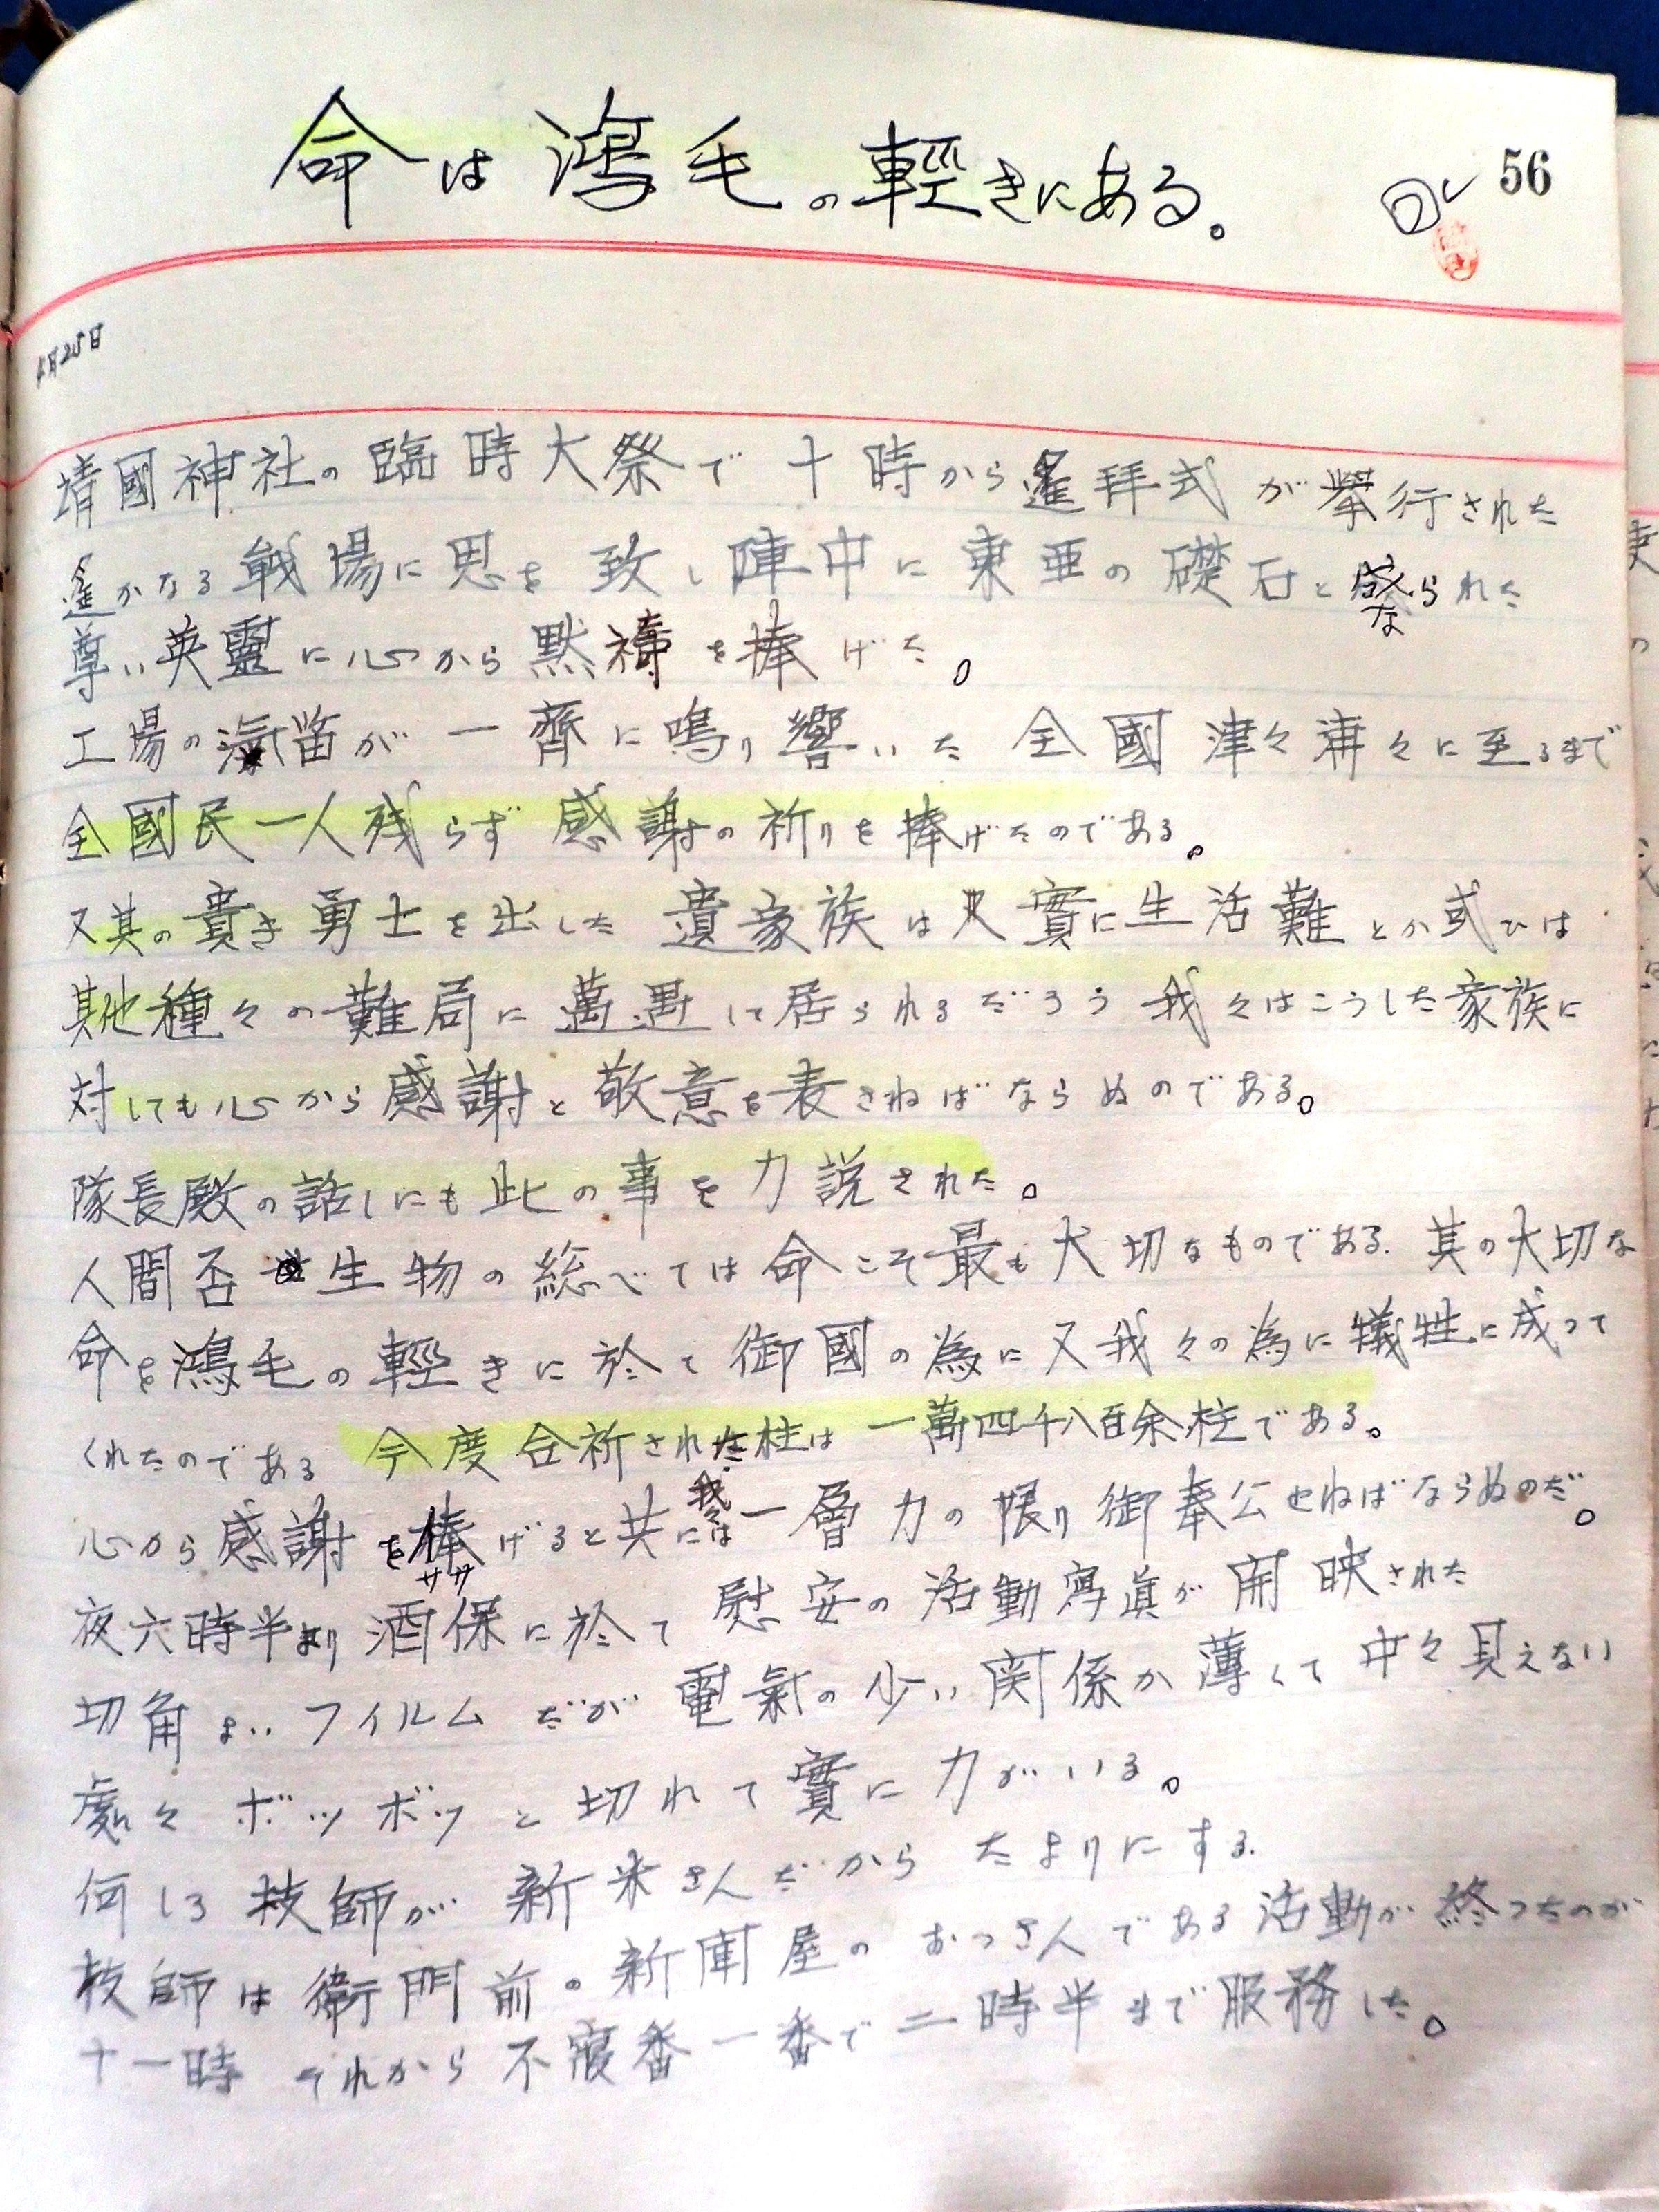 命は鴻毛の輕きにある。
56
4月25日
靖國神社の臨時大祭で十時から遙拝式が擧行された
遙かなる戦場に思を致し陣中に東亜の礎石と なられた
尊い英靈に心から黙禱を捧げた。
工場の汽笛が一齊に鳴り響いた 全國津々浦々に至るまで
全國民一人残らず感謝の祈りを捧げたのである。
又其の貴き勇士を出した遺家族は又實に生活難とか或ひは
其他種々の難局に 遇して居られるだろう 我々はこうした家族に
対しても心から感謝と敬意を表さねばならぬのである。
隊長殿の話しにも此の事を力説された。
人間否 生物の総べては命こそ最も大切なものである. 其の大切な
命を鴻毛の輕きに於て御國の為に又我々の為に犠牲に成って
くれたのである 今度合祈された柱は一萬四千八百余柱である。
心から感謝を捧げると共に我々は一層力の限り御奉公せねばならぬのだ。
ササ
夜六時半より酒保に於て慰安の活動寫眞が開映された
切角よいフィルムだが電氣の少い関係か薄くて中々見えない
處々ボツボツと切れて實に力がいる。
何しろ技師が新米さんだから たよりにする.
技師は衛門前の新聞屋のおっさんである 活動が終つたのが
十一時 それから不寝番一番で二時半まで服務した。